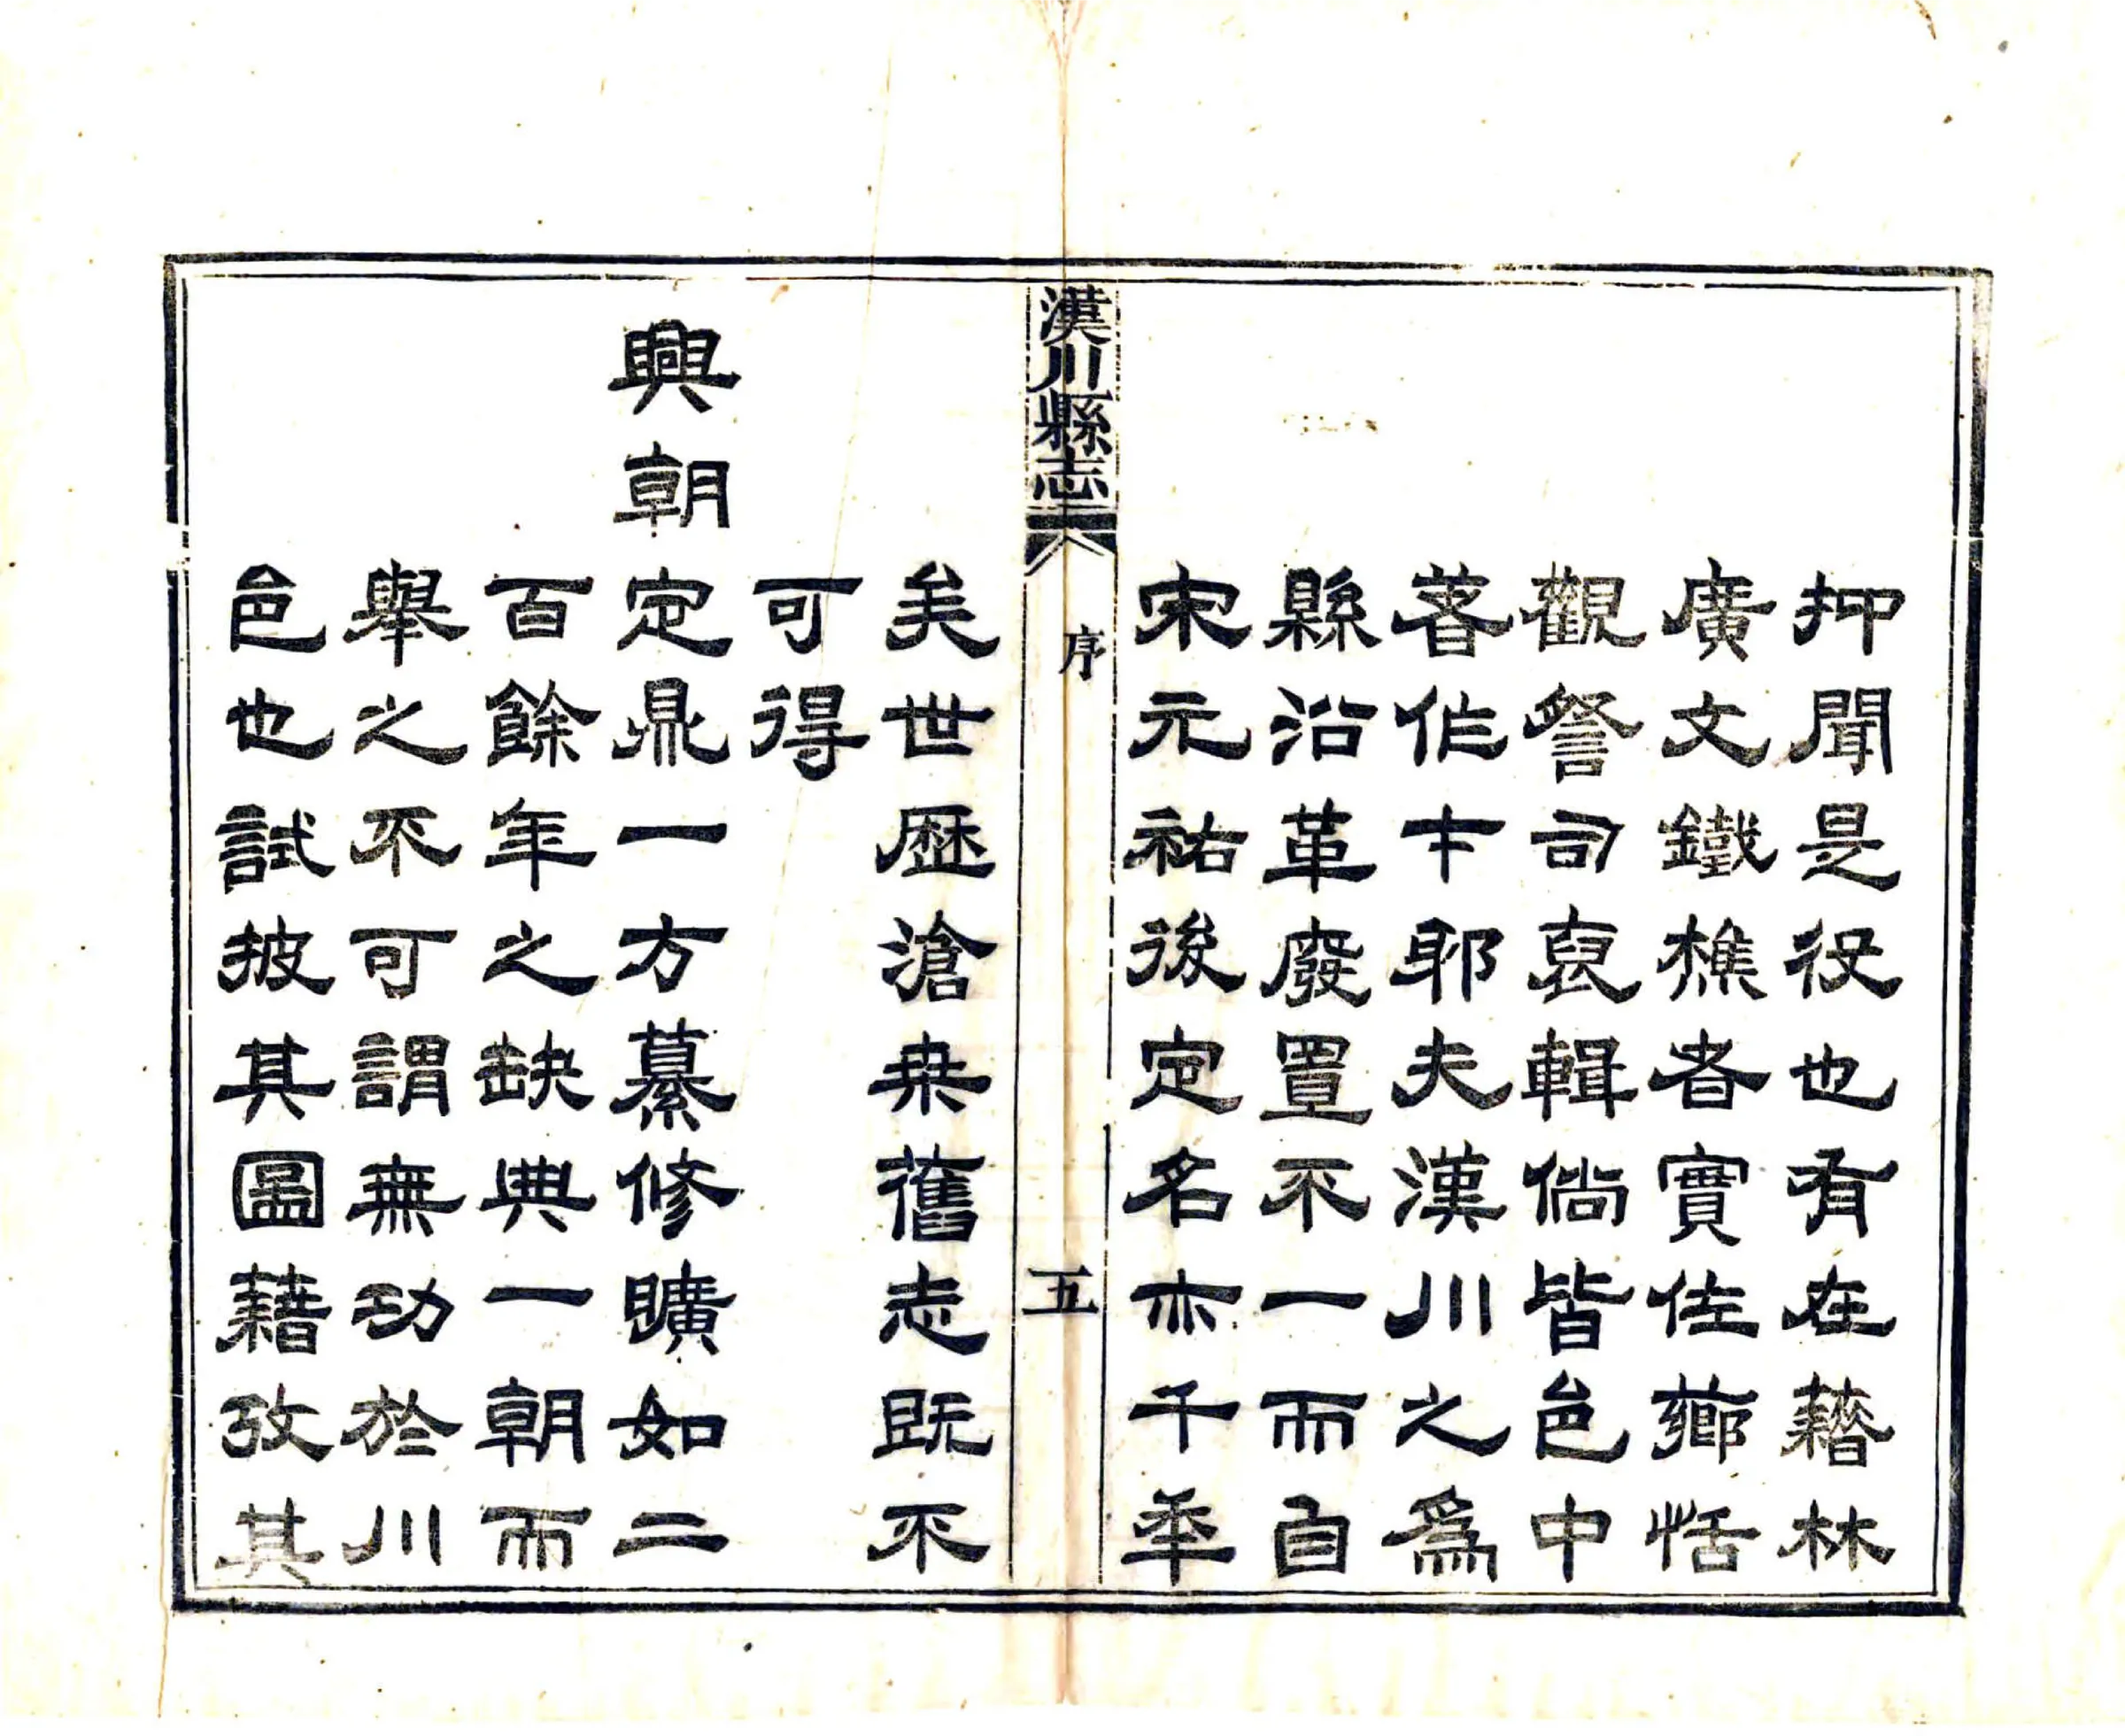 抑聞是役也有在藉林
廣文鐵樵者實佐薌恬
觀詧司裒輯倘皆邑中
著作才耶夫漢川之為
縣沿革廢置不一而自
宋元祐後定名亦千年
漢川縣志
序
五
矣世歷滄桒舊志既不
可得
興朝定鼎一方纂修曠如二
百餘年之缺典一朝而
舉之不可謂無功於川
邑也試披其圖藉攷其